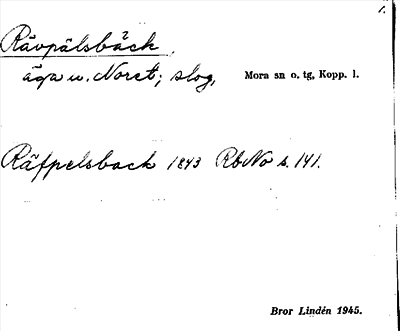 1.
Rävpälsbäck,
äga u. Noret; slog,   Mora sn o. tg, Kopp. l.
Räfpelsback 1843 RbNo s. 141.
Bror Lindén 1945.